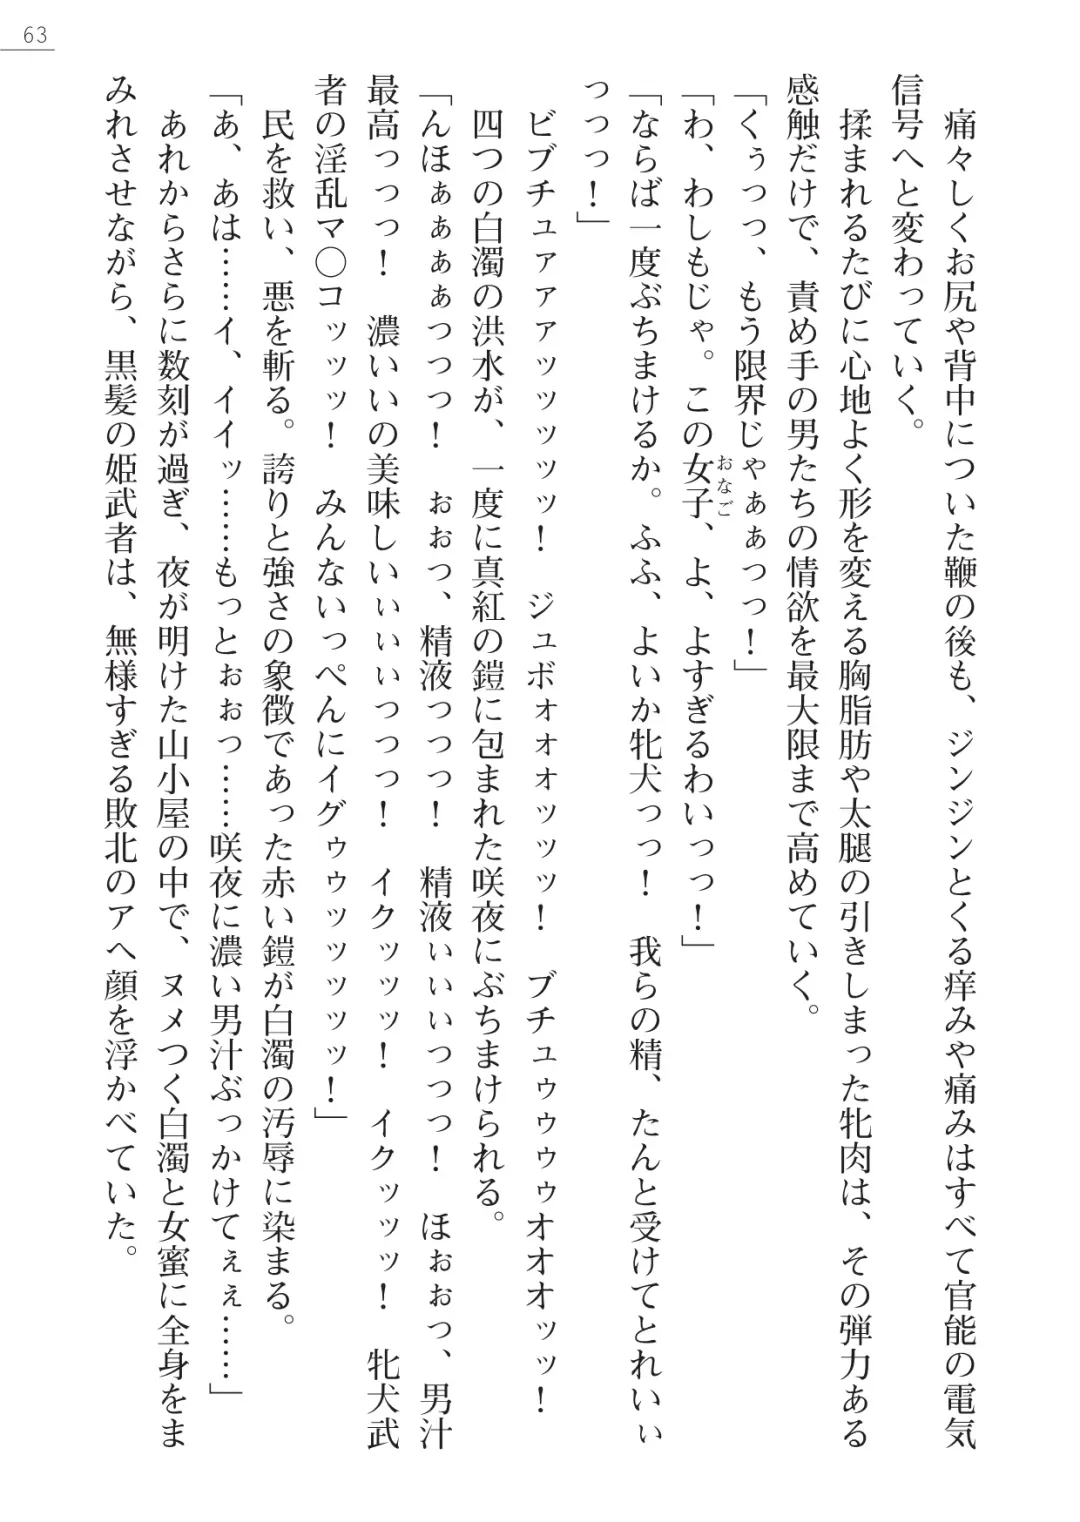 63
痛々しくお尻や背中についた鞭の後も、ジンジンとくる痒みや痛みはすべて官能の電気
信号へと変わっていく。
揉まれるたびに心地よく形を変える胸脂肪や太腿の引きしまった牝肉は、その弾力ある
感触だけで、責め手の男たちの情欲を最大限まで高めていく。
「くぅっっ、もう限界じゃぁぁっっ！」
「わ、わしもじゃ。この女子、よ、よすぎるわいっっ！」
おなご
「ならば一度ぶちまけるか。ふふ、よいか牝犬っっ！　我らの精、たんと受けてとれいぃ
っっっ！」
ビブチュァァァッッッッ！　ジュボォォォッッッ！　ブチュゥゥゥゥオオオッッ！
四つの白濁の洪水が、一度に真紅の鎧に包まれた咲夜にぶちまけられる。
「んほぁぁぁぁっっっ！　ぉぉっ、精液っっっ！　精液ぃぃぃっっっ！　ほぉぉっ、男汁
最高っっっ！　濃いいの美味しいぃぃぃっっっ！　イクッッッ！　イクッッッ！　牝犬武
者の淫乱マ◯コッッッ！　みんないっぺんにイグゥゥッッッッッ！」
民を救い、悪を斬る。誇りと強さの象徴であった赤い鎧が白濁の汚辱に染まる。
「あ、あは……イ、イイッ……もっとぉぉっ……咲夜に濃い男汁ぶっかけてぇぇ……」
あれからさらに数刻が過ぎ、夜が明けた山小屋の中で、ヌメつく白濁と女蜜に全身をま
みれさせながら、黒髪の姫武者は、無様すぎる敗北のアヘ顔を浮かべていた。